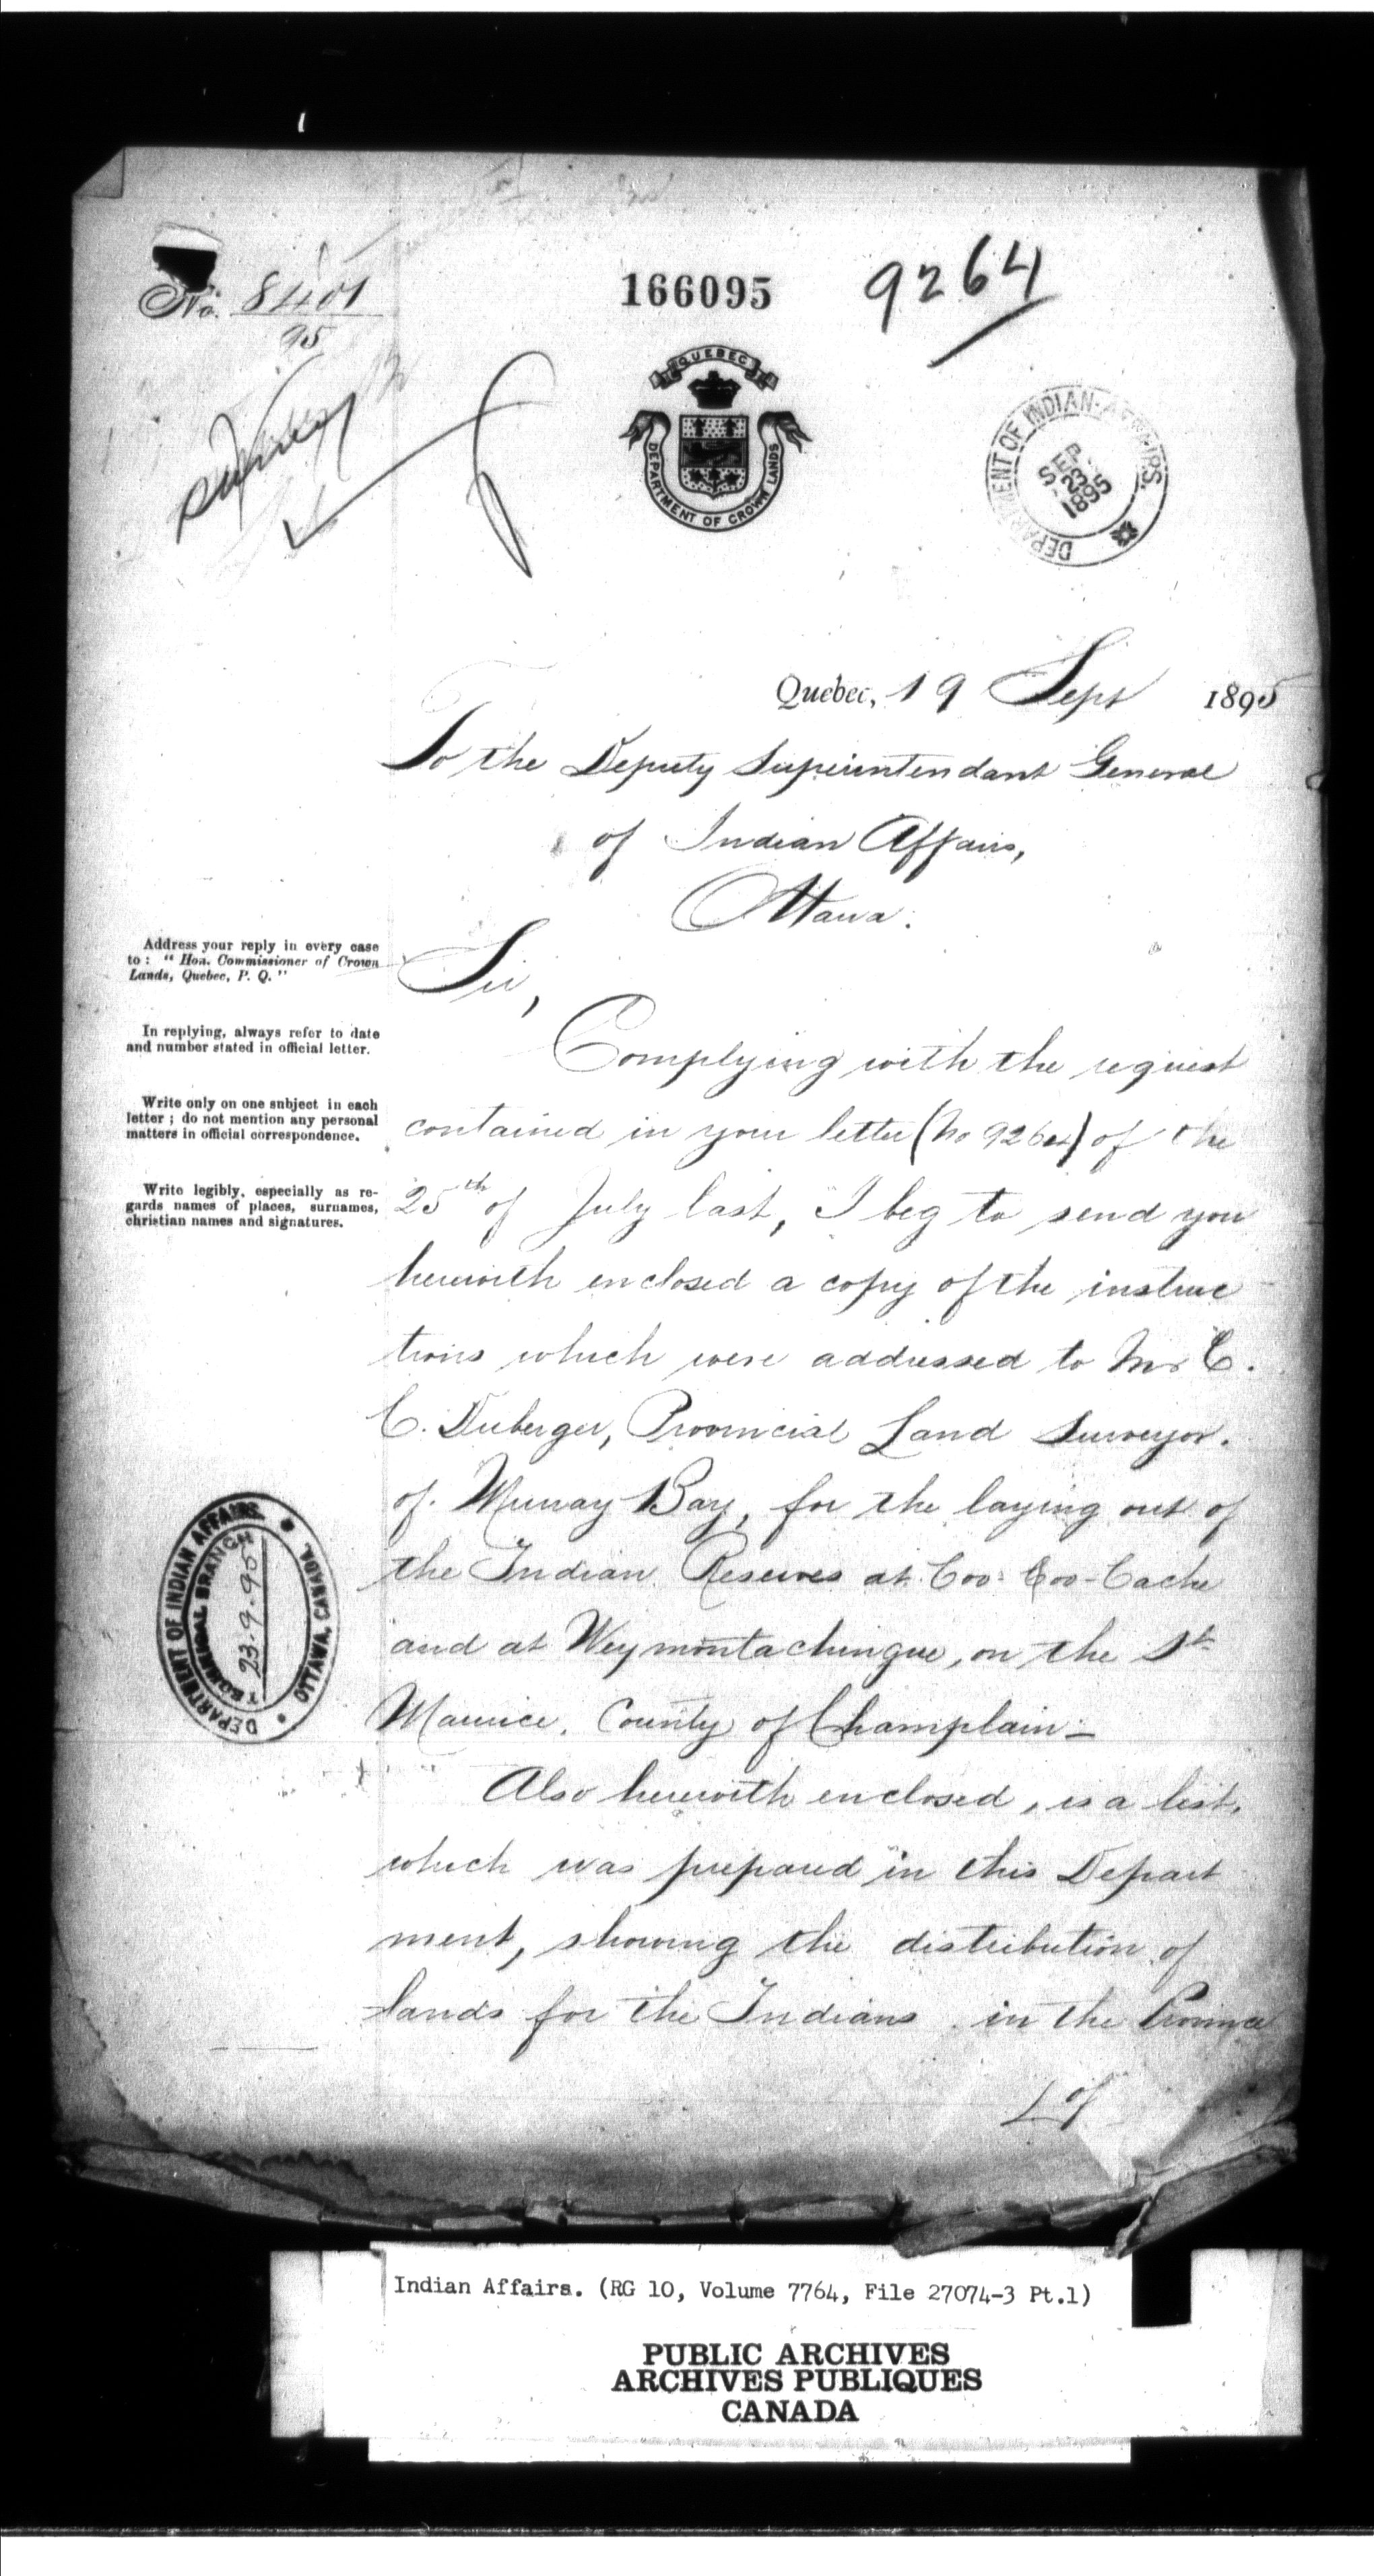 No. 8401
95
166095
9264
QUEBEC
DEPARTMENT OF CROWN LANDS
DEPARTMENT OF INDIAN AFFAIRS.
SEP
23
1895
Quebec, 19 Sept 1895
To the Deputy Superintendant General
of Indian Affairs,
Ottawa.
Address your reply in every case
to : " Hon. Commissioner of Crown
Lands, Quebec, P. Q. "
In replying, always refer to date
and number stated in official letter.
Write only on one subject in each
letter ; do not mention any personal
matters in official correspondence.
Write legibly, especially as re-
gards names of places, surnames,
christian names and signatures.
Sir,
Complying with the request
contained in your letter (No 9264) of the
25th of July last, I beg to send you
herewith enclosed a copy of the instruc
tions which were addressed to Mr C.
C. Duberger, Provincial Land Surveyor.
of Murray Bay, for the laying out of
the Indian Reserves at Coo-Coo-Cache
and at Weymontachingue, on the St
Maurice. County of Champlain -
DEPARTMENT OF INDIAN AFFAIRS
TECHNICAL BRANCH
23.9.95
OTTAWA, CANADA.
Also herewith enclosed, is a list,
which was prepared in this Depart
ment, showing the distribution of
lands for the Indians in the Province
of
Indian Affairs. (RG 10, Volume 7764, File 27074-3 Pt.1)
PUBLIC ARCHIVES
ARCHIVES PUBLIQUES
CANADA